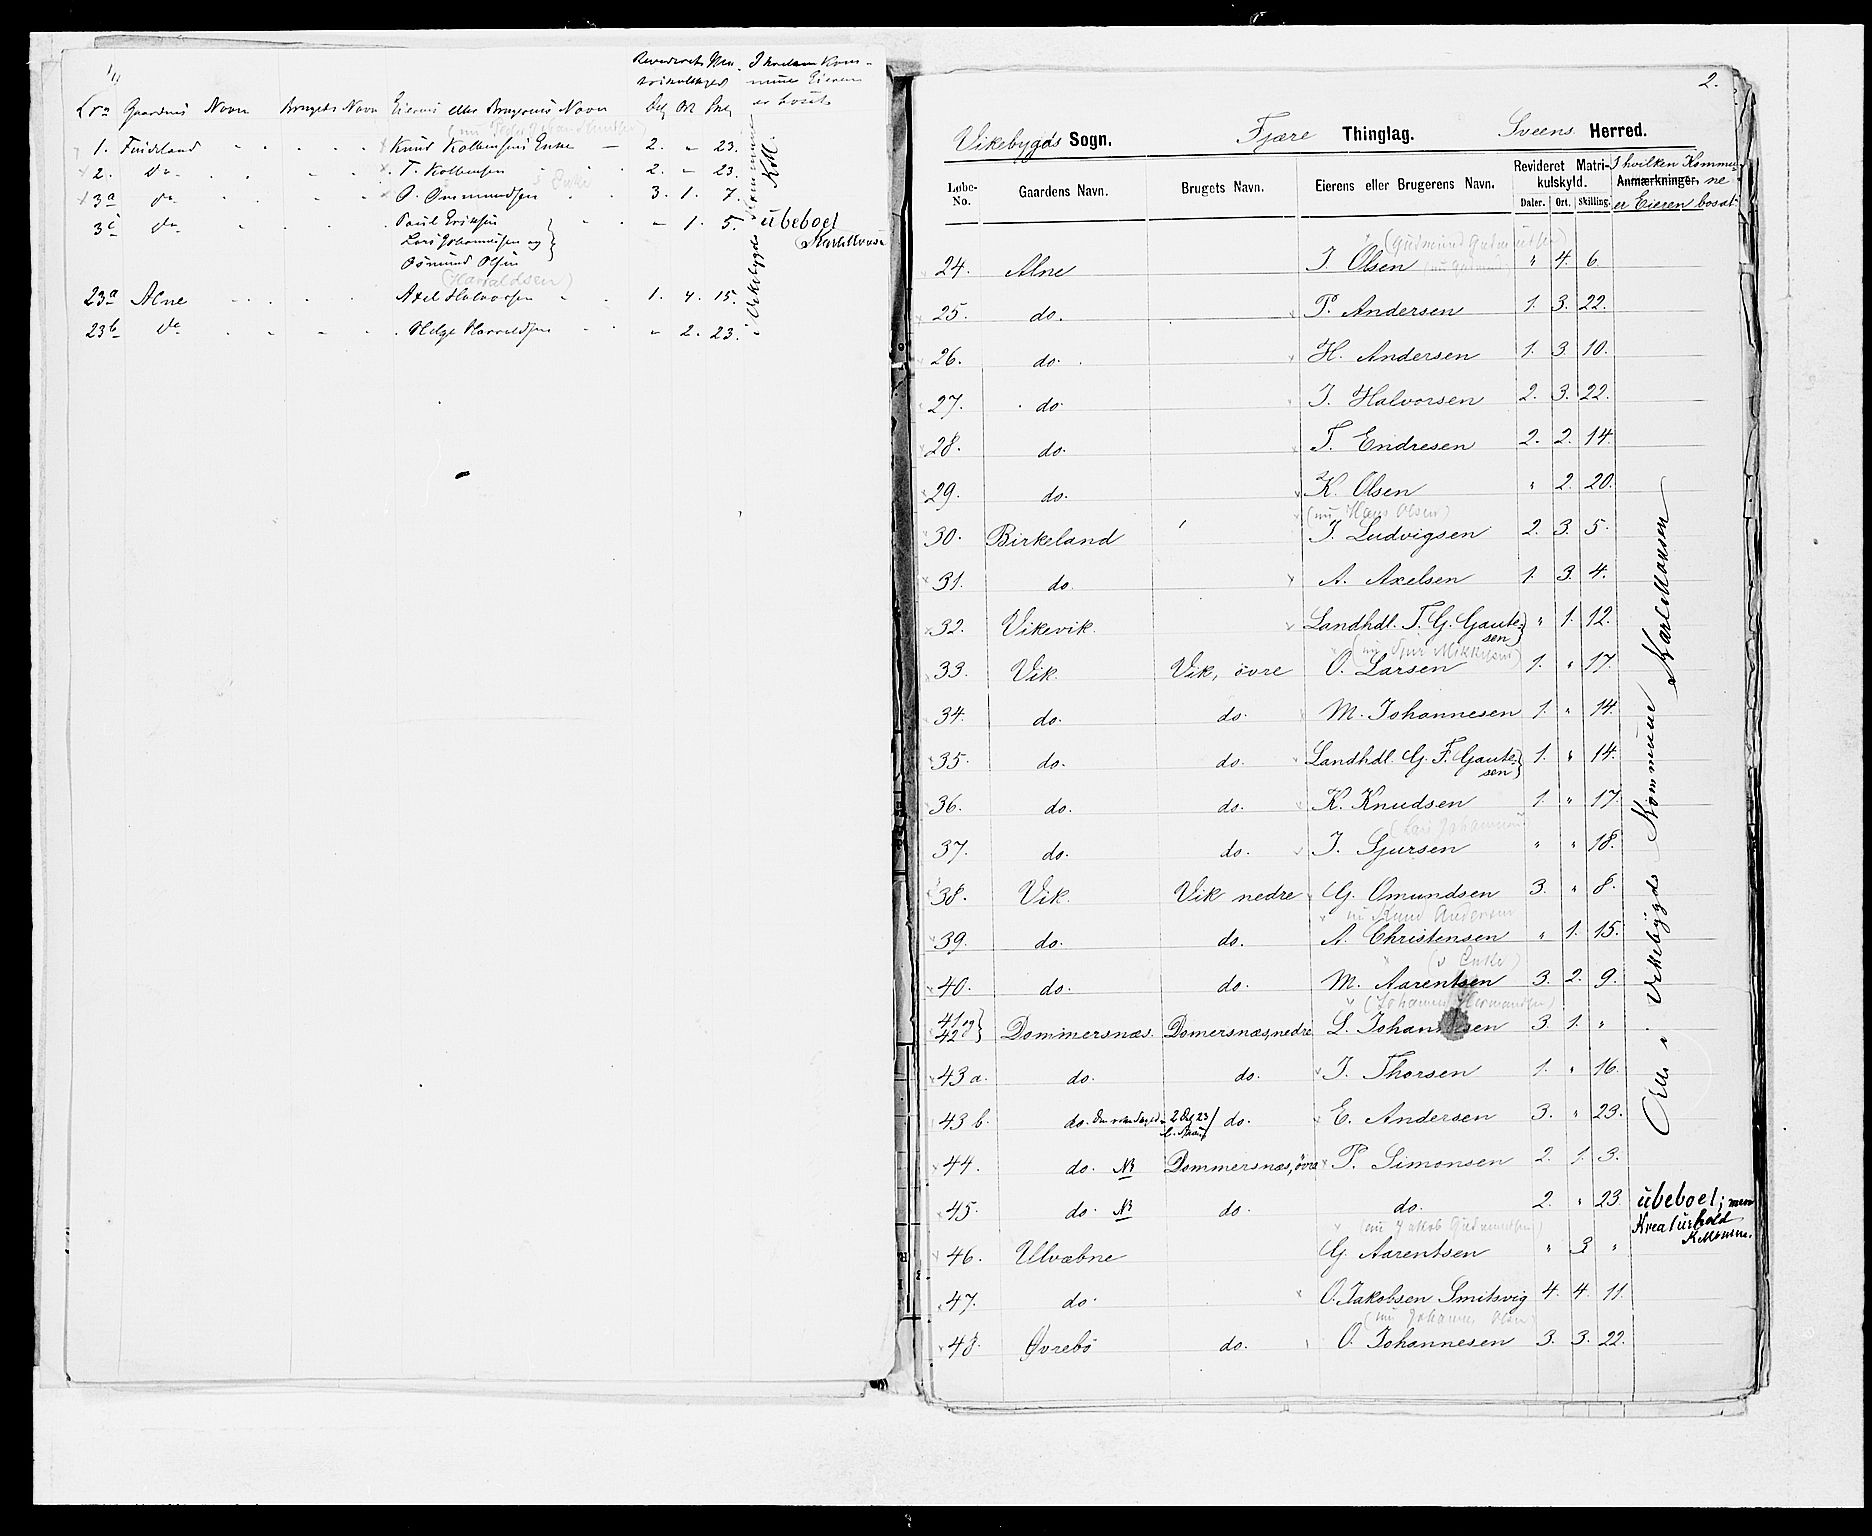 Revideret Ma- I hvilken Kom-
trikulskyld mune Eieren
Lno Gaardens Navn Brugets Navn Eierens eller Brugerens Navn Dlr Ort Skl er bosat
1. Knut Kolbensens Enke 2. " 23.
2. do T. Kolbensen 2. " 23.
3a do O. Osmundsen s Enke 3. 1. 7.
3c do Poul Eriksen " 1. 5. ubeboet
Lars Johannesen og Karl E Mousen
Osmund Olsen
(Haraldsen)
23a Alne Axel Halvorsen 1. 4. 15.
23b do Helge Harraldsen " 2. 23.
i Vikebygds Kommune
2.
Vikebygds Sogn. Fjære Thinglag. Sveens Herred.
Løbe-No. Gaardens Navn. Brugets Navn. Eierens eller Brugerens Navn. Revideret Matrikulskyld. Daler. Ort. Skilling. Anmærkninger. I hvilken Kommune er Eieren bosat
(Gudmund Gudmundsen)
24. Alne I. Olsen " 4. 6.
25. do. P. Andersen 1. 3. 22.
26. do. H. Andersen 1. 3. 10.
27. do. I. Halvorsen 2. 3. 22.
28. do. T. Endresen 2. 2. 14.
29. do. K. Olsen " 2. 20.
(nu Hans Olsen)
30. Birkeland I. Ludvigsen 2. 3. 5.
31. do. A. Axelsen 1. 3. 4.
32. Vikevik. Landhdl. T. G. Gaute- " 1. 12.
sen
(nu Sjur Mikkelsen)
33. Vik. Vik, övre O. Larsen 1. " 17.
34. do. do. M. Johannesen 1. " 14.
35. do. do. Landhdl. G. T. Gaute- 1. " 14.
sen
36. do. do. K. Knudsen 1. " 17.
(Lars Johannesen
37. do. do. I. Sjursen " " 18.
38. Vik. Vik nedre G. Omundsen 3. " 8.
nu Knud Andersen
39. do. do. A. Christensen " 1. 15.
(s Enke)
40. do. do. M. Aarentsen 3. 2. 9.
(Johannes Hermansen)
41 og 42 Dommersnæs. Domersnæs, nedre L. Johannesen 3. 1. "
43 a. do. do. I. Thorsen 1. " 16.
43 b. do. do. E. Andersen 3. " 23.
44. do. NB Dommersnæs, övre P. Simonsen 2. 1. 3.
45. do. NB do. do. 2. " 23. ubeboet; men
Kreaturhold
(nu Jakob Gudmundsen)
46. Ulvæbne G. Aarentsen " 3. "
47. do. O. Jakobsen Smitsvig 4. 4. 11.
(nu Johannes Olsen)
48. Øvrebö do. O. Johannesen 3. 3. 22.
Alle i Vikebygds Kommune Karl E Mousen